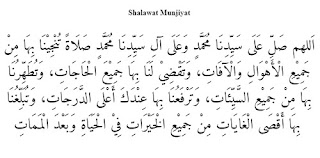 Shalawat Munjiyat
اَللهم صَلِّ عَلَى سَيِّدِنَا مُحَمَّدٍ وَعَلَى آلِ سَيِّدِنَا مُحَمَّدٍ صَلاَةً تُنْجِيْنَا بِهَا مِنْ
جَمِيْعِ الْأَهْوَالِ وَالْآفَاتِ، وَتَقْضِيْ لَنَا بِهَا جَمِيْعَ الْحَاجَاتِ، وَتُطَهِّرُنَا
بِهَا مِنْ جَمِيْعِ السَّيِّئَاتِ، وَتَرْفَعُنَا بِهَا عِنْدَكَ أَعْلَى الدَّرَجَاتِ، وَتُبَلِّغُنَا
بِهَا أَقْصَى الْغَايَاتِ مِنْ جَمِيْعِ الْخَيْرَاتِ فِيْ الْحَيَاةِ وَبَعْدَ الْمَمَاتِ